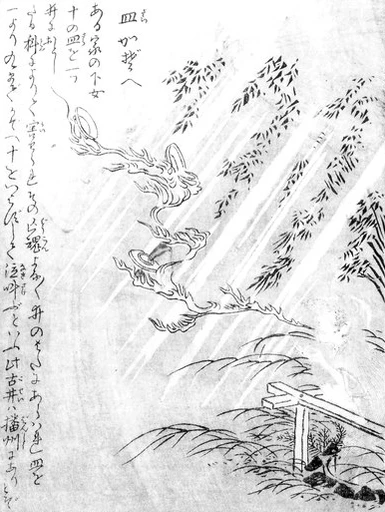 皿かぞへ
ある家の下女
十の皿を一ツ
井におとし
たる科によりて害せられその亡魂よな〱井のはたにあらはれ皿を
一より九までかぞへ十をいはずして泣叫ぶといふ此古井は播州にありとぞ